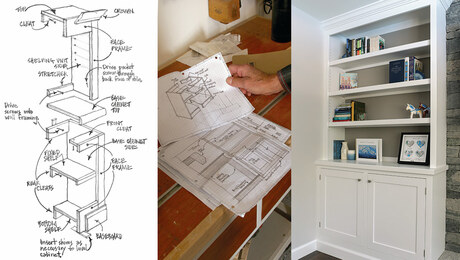 TOP
CROWN
CLEAT
BACK
FRAME
SHELVING UNIT
SIDE
STRETCHER
Drive pocket
screws through
back face of stile.
BASE
CABINET
TOP
Drive
screws into
wall framing
FRONT
CLEAT
BASE CABINET
SIDES
FIXED
SHELF
BACK
FRAME
REAR
CLEATS
BOTTOM
SHELF
BASEBOARD
Insert shims as
necessary to level
cabinet.